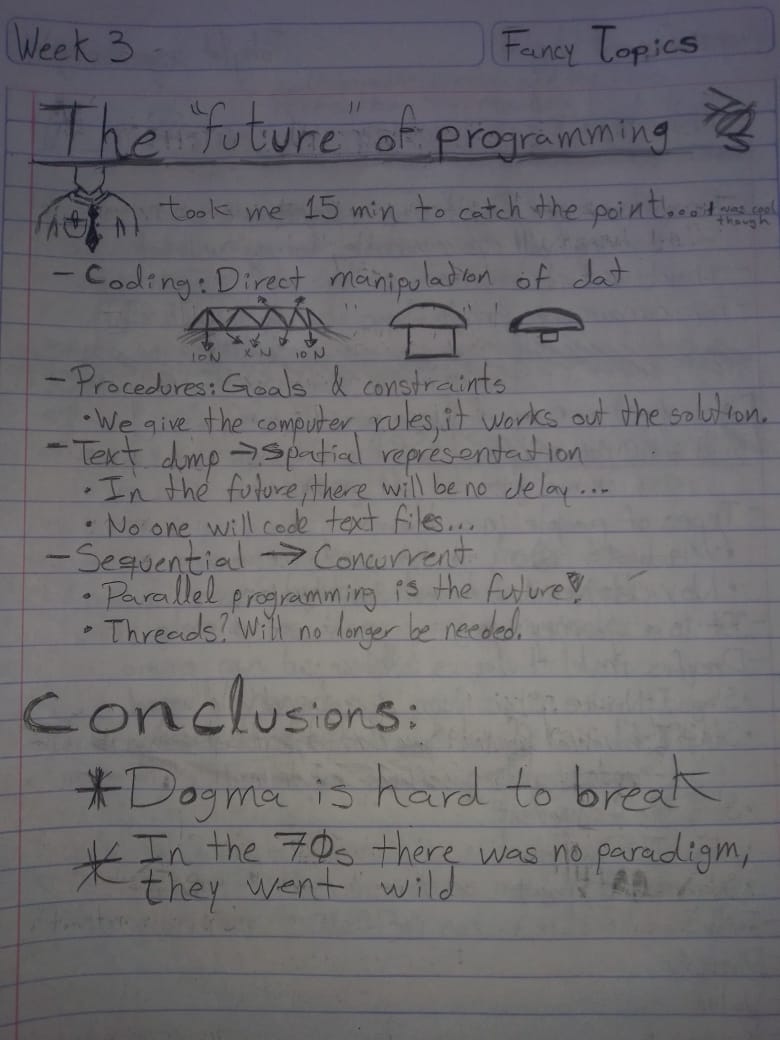 Week 3
Fancy Topics
The "future" of programming
took me 15 min to catch the point... it was cool though
- Coding: Direct manipulation of dat
10 N x N 10 N
- Procedures: Goals & constraints
• We give the computer rules, it works out the solution.
- Text dump → Spatial representation
• In the future, there will be no delay...
• No one will code text files...
- Sequential → Concurrent
• Parallel programming is the future!
• Threads? Will no longer be needed.
Conclusions:
* Dogma is hard to break
* In the 70s there was no paradigm,
they went wild